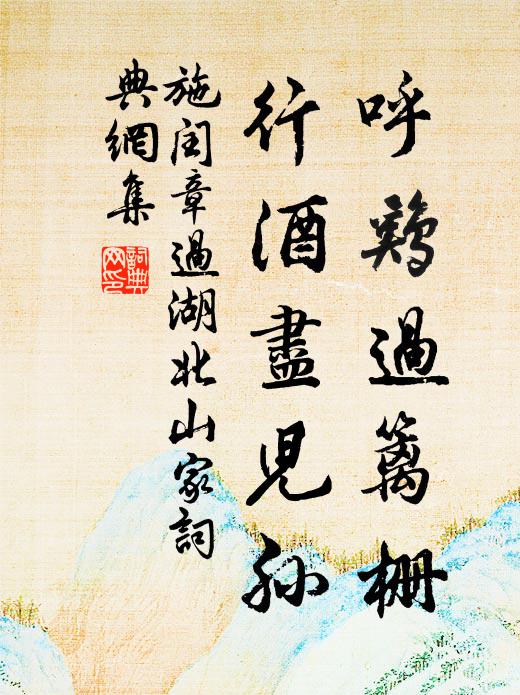 呼鷄過籬柵
行酒盡兒孫
施闰章過湖北山家詞
典網集
詞典
网印